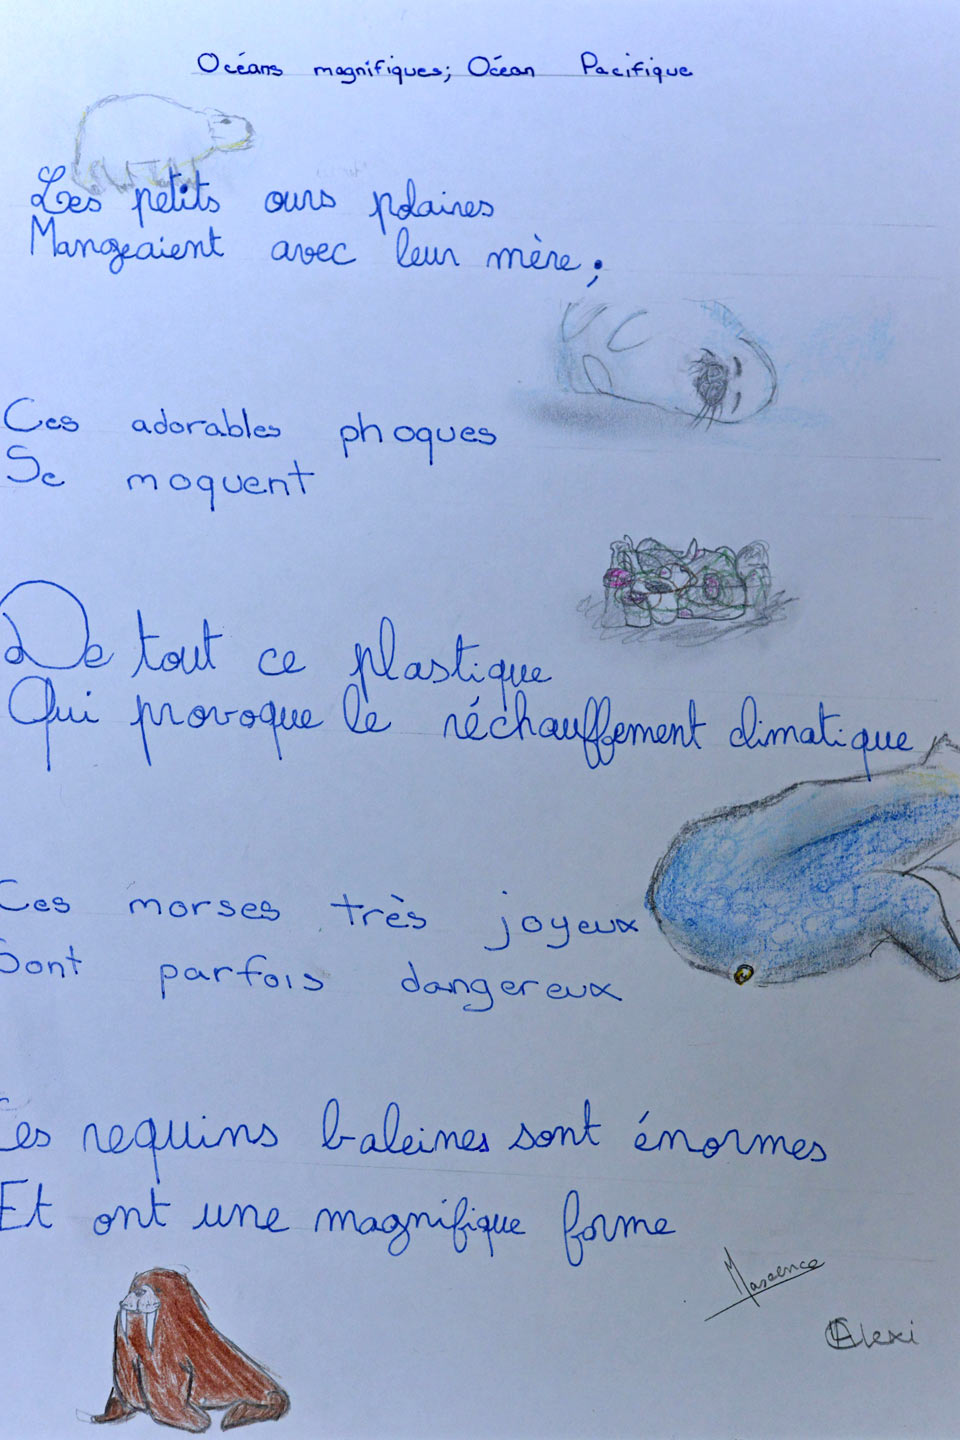 Océans magnifiques; Océan Pacifique
Les petits ours polaires
Mangeaient avec leur mère;
Ces adorables phoques
Se moquent
De tout ce plastique
Qui provoque le réchauffement climatique
Ces morses très joyeux
Sont parfois dangereux
Ces requins baleines sont énormes
Et ont une magnifique forme
Alexi